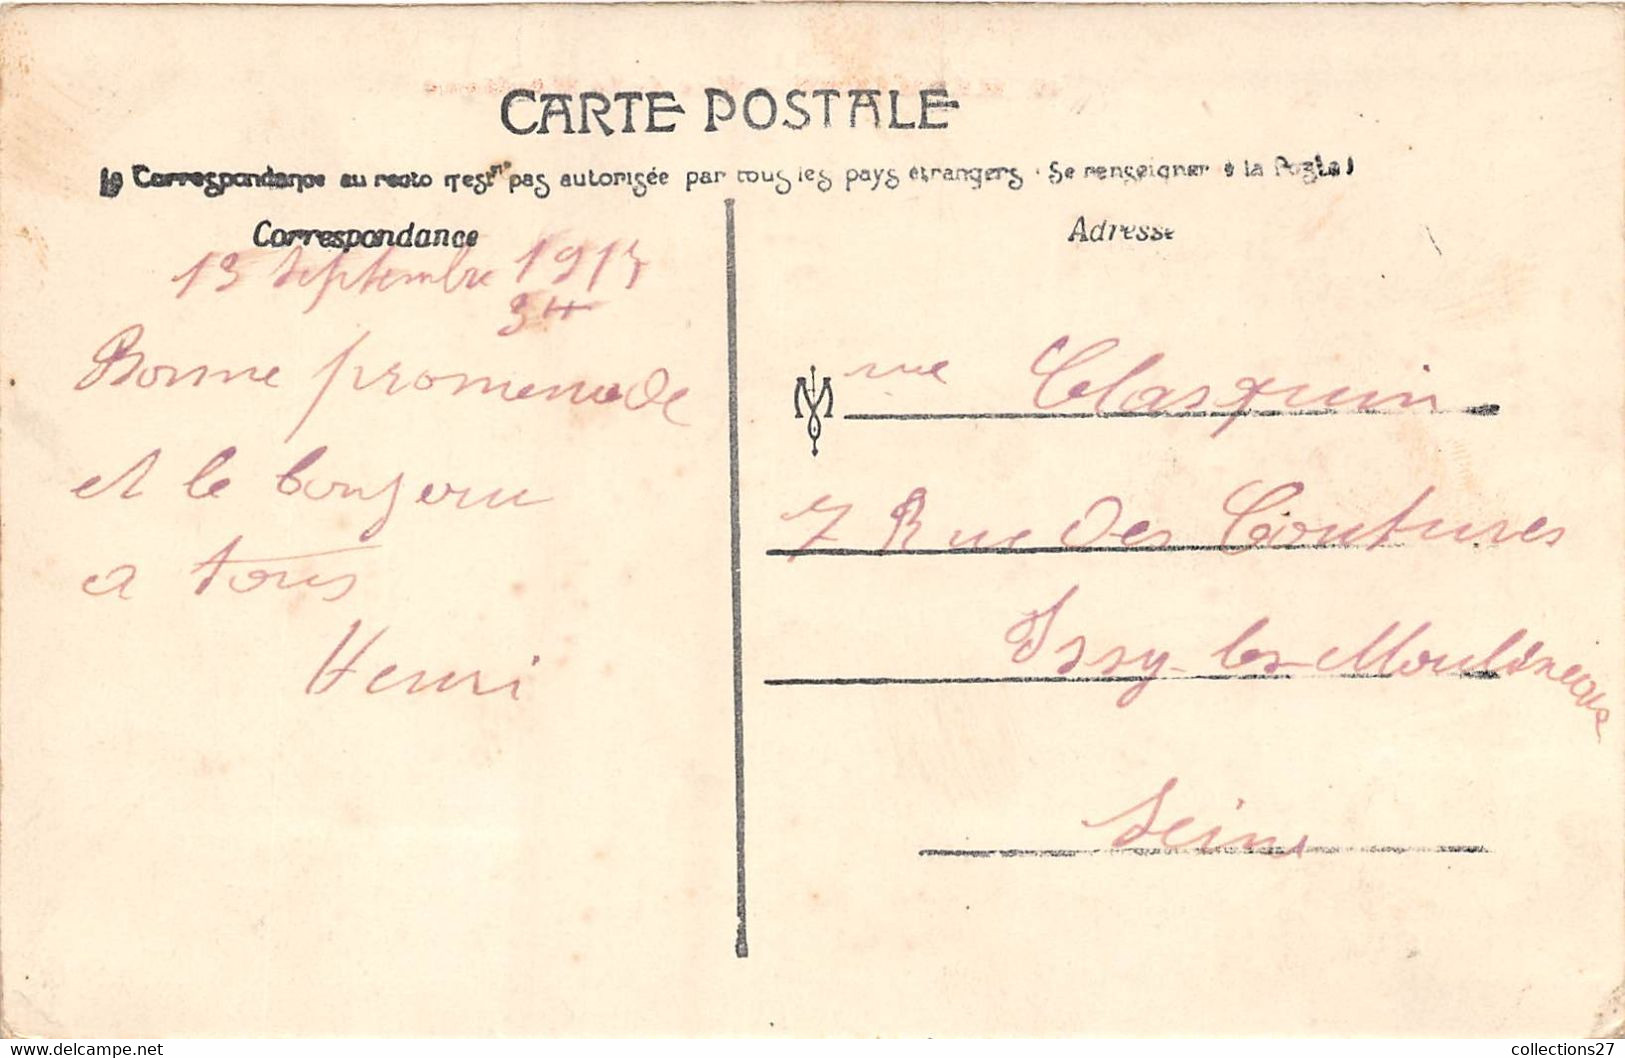 CARTE POSTALE
la Correspondance au recto n'est pas autorisée par tous les pays étrangers (Se renseigner à la Poste)
Correspondance
Adresse
13 Septembre
Bonne promenade
et le bonjour
a tous
Henri
M me Clasquin
7 Rue des Coutures
Issy-les-Moulineaux
Seine
collections27